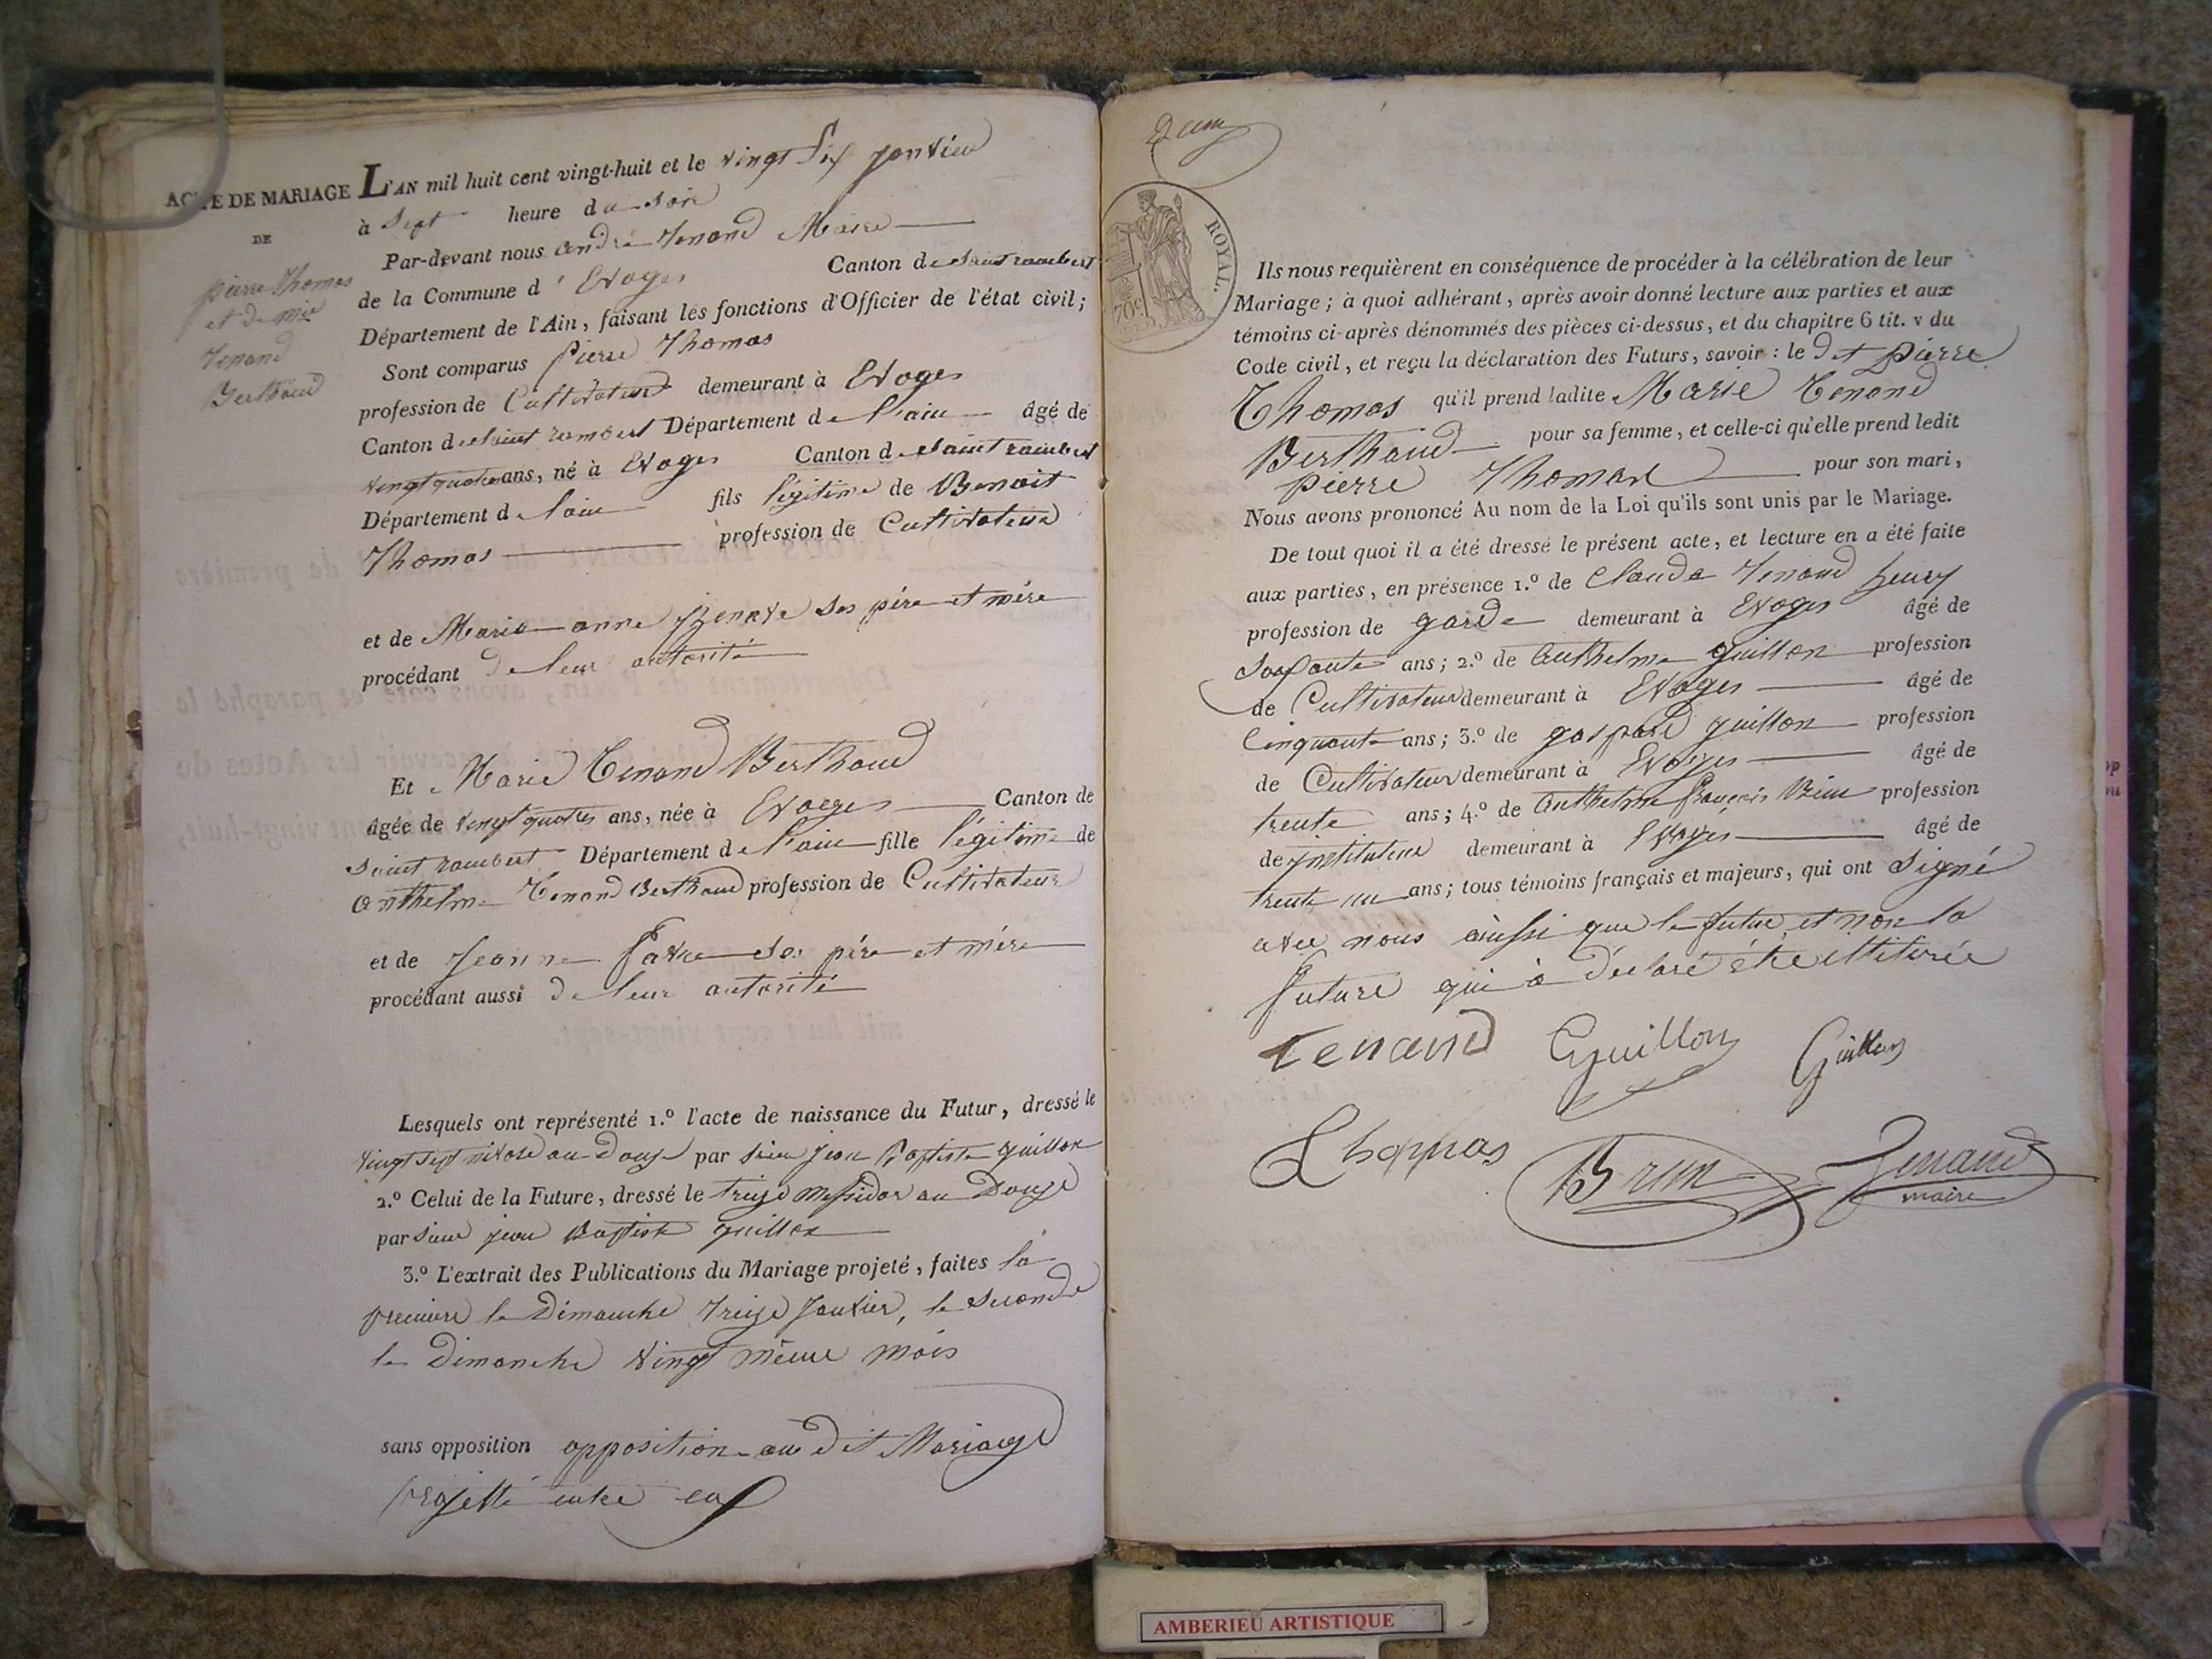 ACTE DE MARIAGE
DE
pierre Thomas
et de mie
Tenand
Berthaud
L'AN mil huit cent vingt-huit et le vingt Six janvier
à Sept heure du Soir
Par-devant nous andré Tenand Maire
de la Commune d'Evoges Canton de Saint rambert
Département de l'Ain, faisant les fonctions d'Officier de l'état civil;
Sont comparus Pierre Thomas
profession de Cultivateur demeurant à Evoges
Canton de Saint rambert Département de l'ain âgé de
vingt quatre ans, né à Evoges Canton de Saint rambert
Département de l'ain fils légitime de Benoit
Thomas profession de Cultivateur
et de Marie anne ses père et mère
procédant de leur autorité
Et Marie Tenand Berthaud
âgée de vingt quatre ans, née à Evoges Canton de
Saint rambert Département de l'ain fille légitime de
anthelme Tenand Berthaud profession de Cultivateur
et de Jeanne Favre ses père et mère
procédant aussi de leur autorité
Lesquels ont représenté 1.º l'acte de naissance du Futur, dressé le
vingt sept nivose an Douze par sieur jean Baptiste guillon
2.º Celui de la Future, dressé le treize messidor an Douze
par sieur jean Baptiste guillon
3.º L'extrait des Publications du Mariage projeté, faites la
premiere le Dimanche treize Janvier, la seconde
le Dimanche vingt même mois
sans opposition opposition au dit Mariage
projetté entre eux
ROYAL.
70c
Ils nous requièrent en conséquence de procéder à la célébration de leur
Mariage; à quoi adhérant, après avoir donné lecture aux parties et aux
témoins ci-après dénommés des pièces ci-dessus, et du chapitre 6 tit. v du
Code civil, et reçu la déclaration des Futurs, savoir: le dit pierre
Thomas qu'il prend ladite Marie Tenand
Berthaud pour sa femme, et celle-ci qu'elle prend ledit
pierre Thomas pour son mari,
Nous avons prononcé Au nom de la Loi qu'ils sont unis par le Mariage.
De tout quoi il a été dressé le présent acte, et lecture en a été faite
aux parties, en présence 1.º de Claude Tenand henry
profession de garde demeurant à Evoges âgé de
Soixante ans; 2.º de Anthelme guillon profession
de Cultivateur demeurant à Evoges âgé de
Cinquante ans; 3.º de gaspard guillon profession
de Cultivateur demeurant à Evoges âgé de
trente ans; 4.º de Anthelme françois Brun profession
de jnstituteur demeurant à Evoges âgé de
trente un ans; tous témoins français et majeurs, qui ont signé
avec nous ainssi que le futur, et non la
future qui à déclaré être illiterée
Tenand Guillon Guillon
Thomas Brun Tenand
maire
AMBERIEU ARTISTIQUE